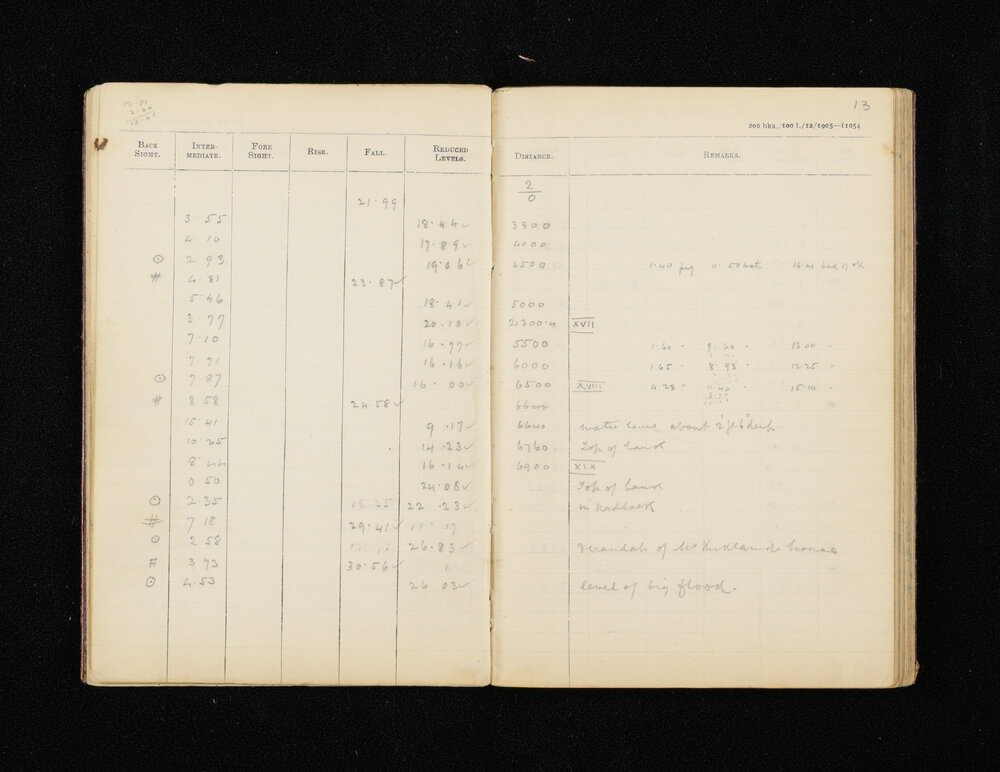 13
200 bks., 100 l./12/1905—11054
BACK SIGHT. INTER-MEDIATE. FORE SIGHT. RISE. FALL. REDUCED LEVELS. DISTANCE. REMARKS.
2/0
21.99
3.55 18.44 ✓ 3800
4.10 17.89 ✓ 4000
⊙ 2 93 19.06 ✓ 4500 1.40 peg 11.50 water 16.40 bed of ck
# 4.81 23.87 ✓
5.46 18.41 ✓ 5000
3.77 20.10 ✓ 21300.4 XVII
7.10 16.77 ✓ 5500 1.60 " 9.60 " 13.00 "
7 71 16.16 ✓ 6000 1.65 " 8.93 " 12.25 "
⊙ 7.87 16.00 ✓ 6500 XVIII 4.28 " 11.40 " 15.10 "
# 8 58 24.58 ✓ 6640
15 41 9.17 ✓ 6640 water level about 2' deep
10 35 14.23 ✓ 6760 Top of bank
8 44 16.14 ✓ 6900 XIX
0 50 24.08 ✓ Top of bank
⊙ 2.35 22.23 ✓ in paddock
# 7 18 29.41 ✓
⊙ 2 58 26.83 ✓ Verandah of house
# 3 73 30.56 ✓
⊙ 4.53 26 03 ✓ level of big flood.